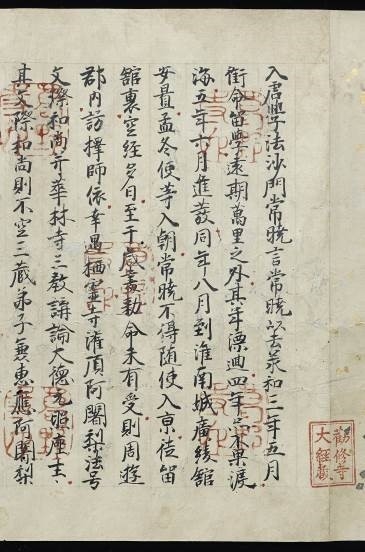 入唐學法沙門常曉言常曉以去承和三年五月
銜命留學遠期萬里之外其年漂廻四年亦不果渡
海五年六月進發同年八月到淮南城廣綾館
安置孟冬使等入朝常曉不得随使入京徒留
舘裏空經多日至于歲盡勅命未有受則周遊
郡内訪擇師依幸遇栖靈寺灌頂阿闍梨法号
文際和尚并華林寺三教講論大德元照座主
其文際和尚則不空三蔵弟子無惠應阿闍梨
勸修寺
大経蔵